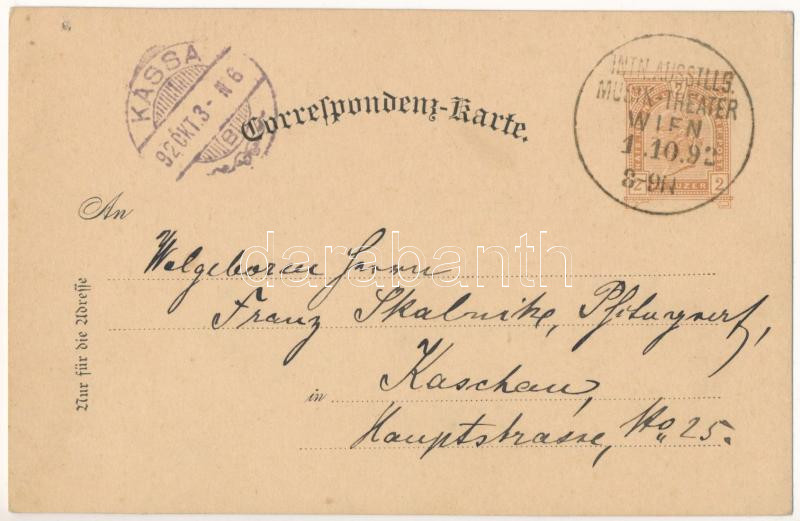 KASSA
92 OKT. 3 - N 6
Correspondenz-Karte.
INTN. AUSSTLLS.
MUSIK-THEATER
WIEN
1.10.92
8-9N
2 2
An
Wolgeboren Herrn
Franz Skalnik,
in Kaschau,
Hauptstrasse, No 25.
Nur für die Adresse
darabanth